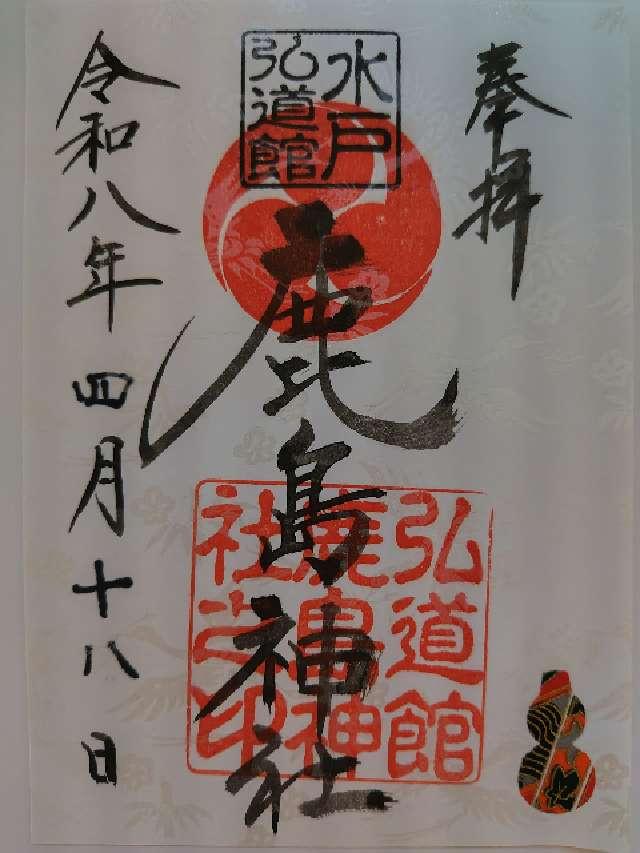 奉拝
水戸
弘道館
鹿島神社
弘道館
鹿島神
社之印
令和八年四月十八日